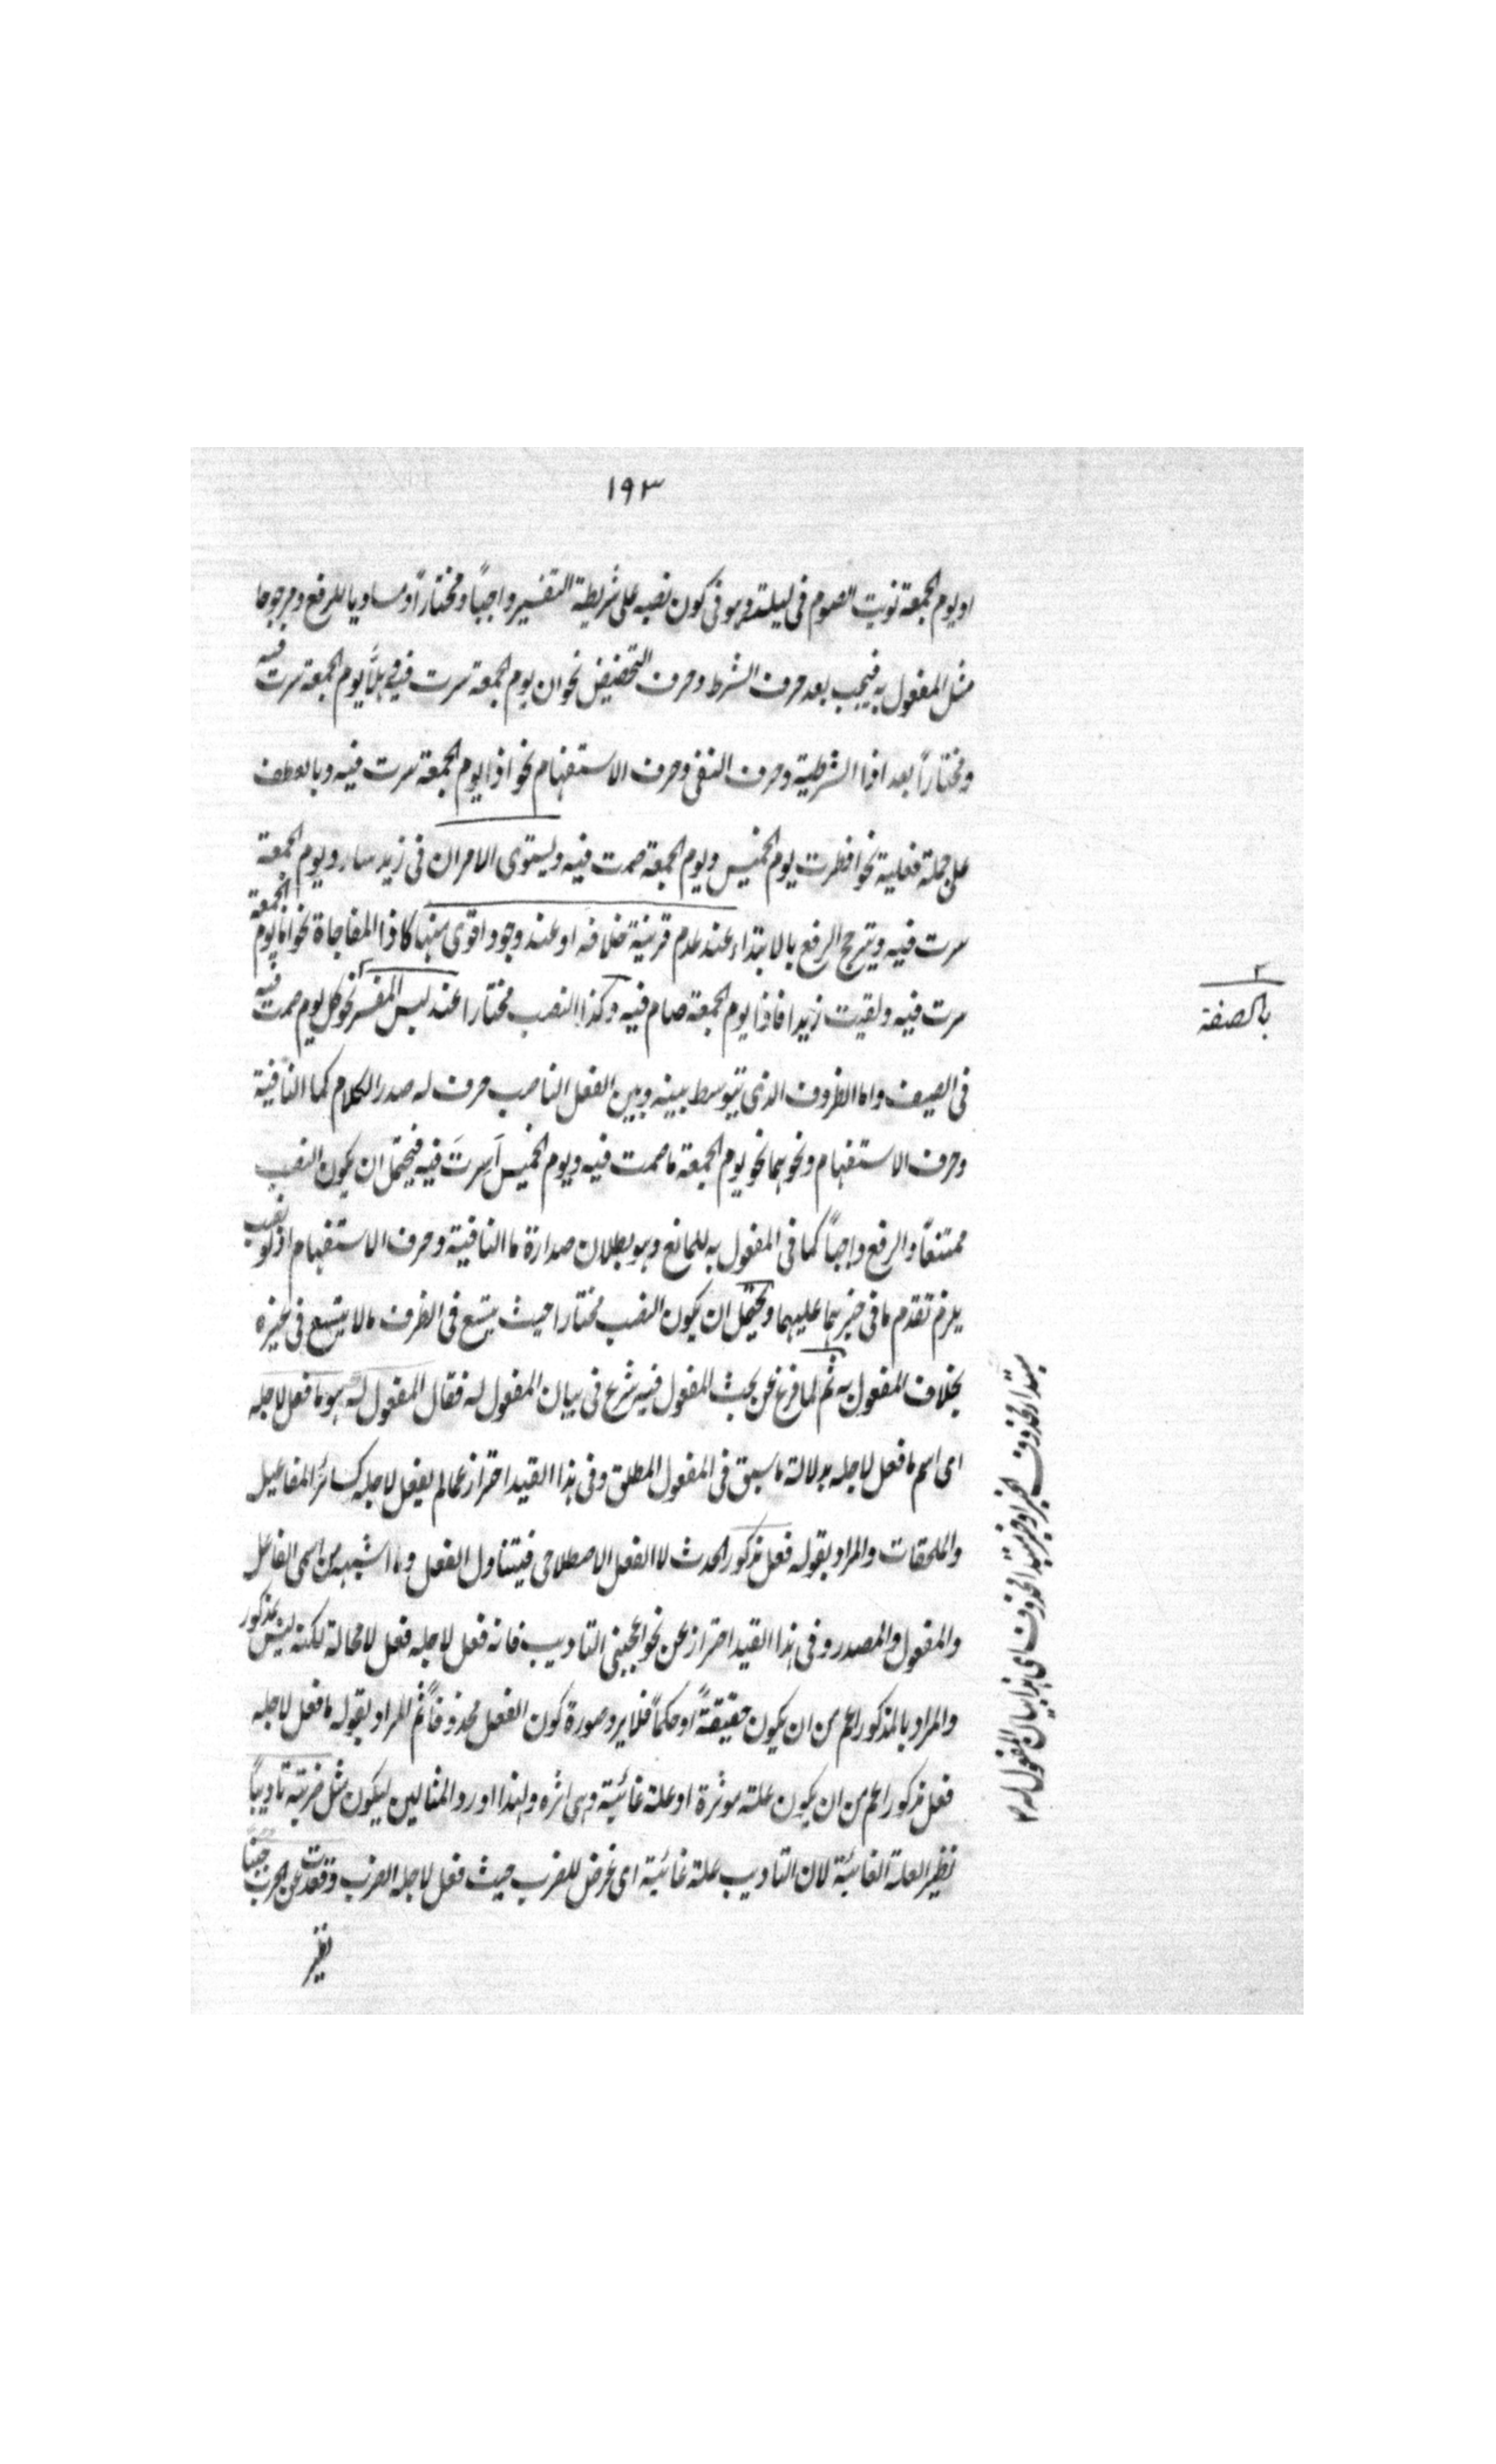 ١٩٣
او يوم الجمعة نويت الصوم فى ليلته وهو فى كون نصبه على شريطة التفسير واجبًا ومختارًا ومساويا للرفع ومرجوحا
مثل المفعول به فيجب بعد حرف الشرط وحرف التحضيض نحو ان يوم الجمعة سرت فيه وهلّا يوم الجمعة سرت فيه
ومختاراً بعد اذا الشرطية وحرف النفى وحرف الاستفهام نحو اذا يوم الجمعة سرت فيه وبالعطف
على جملة فعلية نحو افطرت يوم الخميس ويوم الجمعة صمت فيه ويستوى الامران فى زيد سار ويوم الجمعة
سرت فيه ويترجح الرفع بالابتداء عند عدم قرينة خلافه او عند وجود اقوى منها كاذا المفاجاة نحو اما يوم الجمعة
سرت فيه ولقيت زيدا فاذا يوم الجمعة صام فيه وكذا النصب مختارا عند لبس المفسر نحو كل يوم صمت فيه
فى الصيف واما الظروف الذى يتوسط بينه وبين الفعل الناصب حرف له صدر الكلام كما النافية
وحرف الاستفهام ونحوهما نحو يوم الجمعة ما صمت فيه ويوم الخميس اَسِرتَ فيه فيحتمل ان يكون النصب
ممتنعاً والرفع واجباً كما فى المفعول به للمانع وهو بطلان صدارة ما النافية وحرف الاستفهام اذ لو نصب
يلزم تقدم ما فى حيزهما عليهما ويحتمل ان يكون النصب مختارا حيث يتسع فى الظرف ما لا يتسع فى غيره
بخلاف المفعول به ثم لما فرغ عن بحث المفعول فيه شرع فى بيان المفعول له فقال المفعول له هو ما فعل لاجله
اى اسم ما فعل لاجله بدلالة ما سبق فى المفعول المطلق وفى هذا القيد احتراز عما لم يفعل لاجله كسائر المفاعيل
والملحقات والمراد بقوله فعل مذكور الحدث لا الفعل الاصطلاحى فيتناول الفعل وما اشبهه من اسمى الفاعل
والمفعول والمصدر وفى هذا القيد احتراز عن نحو اعجبنى التاديب فانه فعل لاجله فعل لا محالة لكنه ليس بمذكور
والمراد بالمذكور اعم من ان يكون حقيقةً او حكماً فلا يرد صورة كون الفعل محذوفاً ثم المراد بقوله ما فعل لاجله
فعل مذكور اعم من ان يكون علة موثرة او علة غائية وهى اثره ولهذا اورد المثالين ليكون مثل ضربته تاديباً
نظير العلة الغائية لان التاديب علة غائية اى غرض للضرب حيث فعل لاجله الضرب وقعدت عن الحرب جبناً
نظير
٢
بالصفة
مبتدا محذوف الخبر او خبر مبتدا محذوف اى هذا بيان المفعول له ١٢